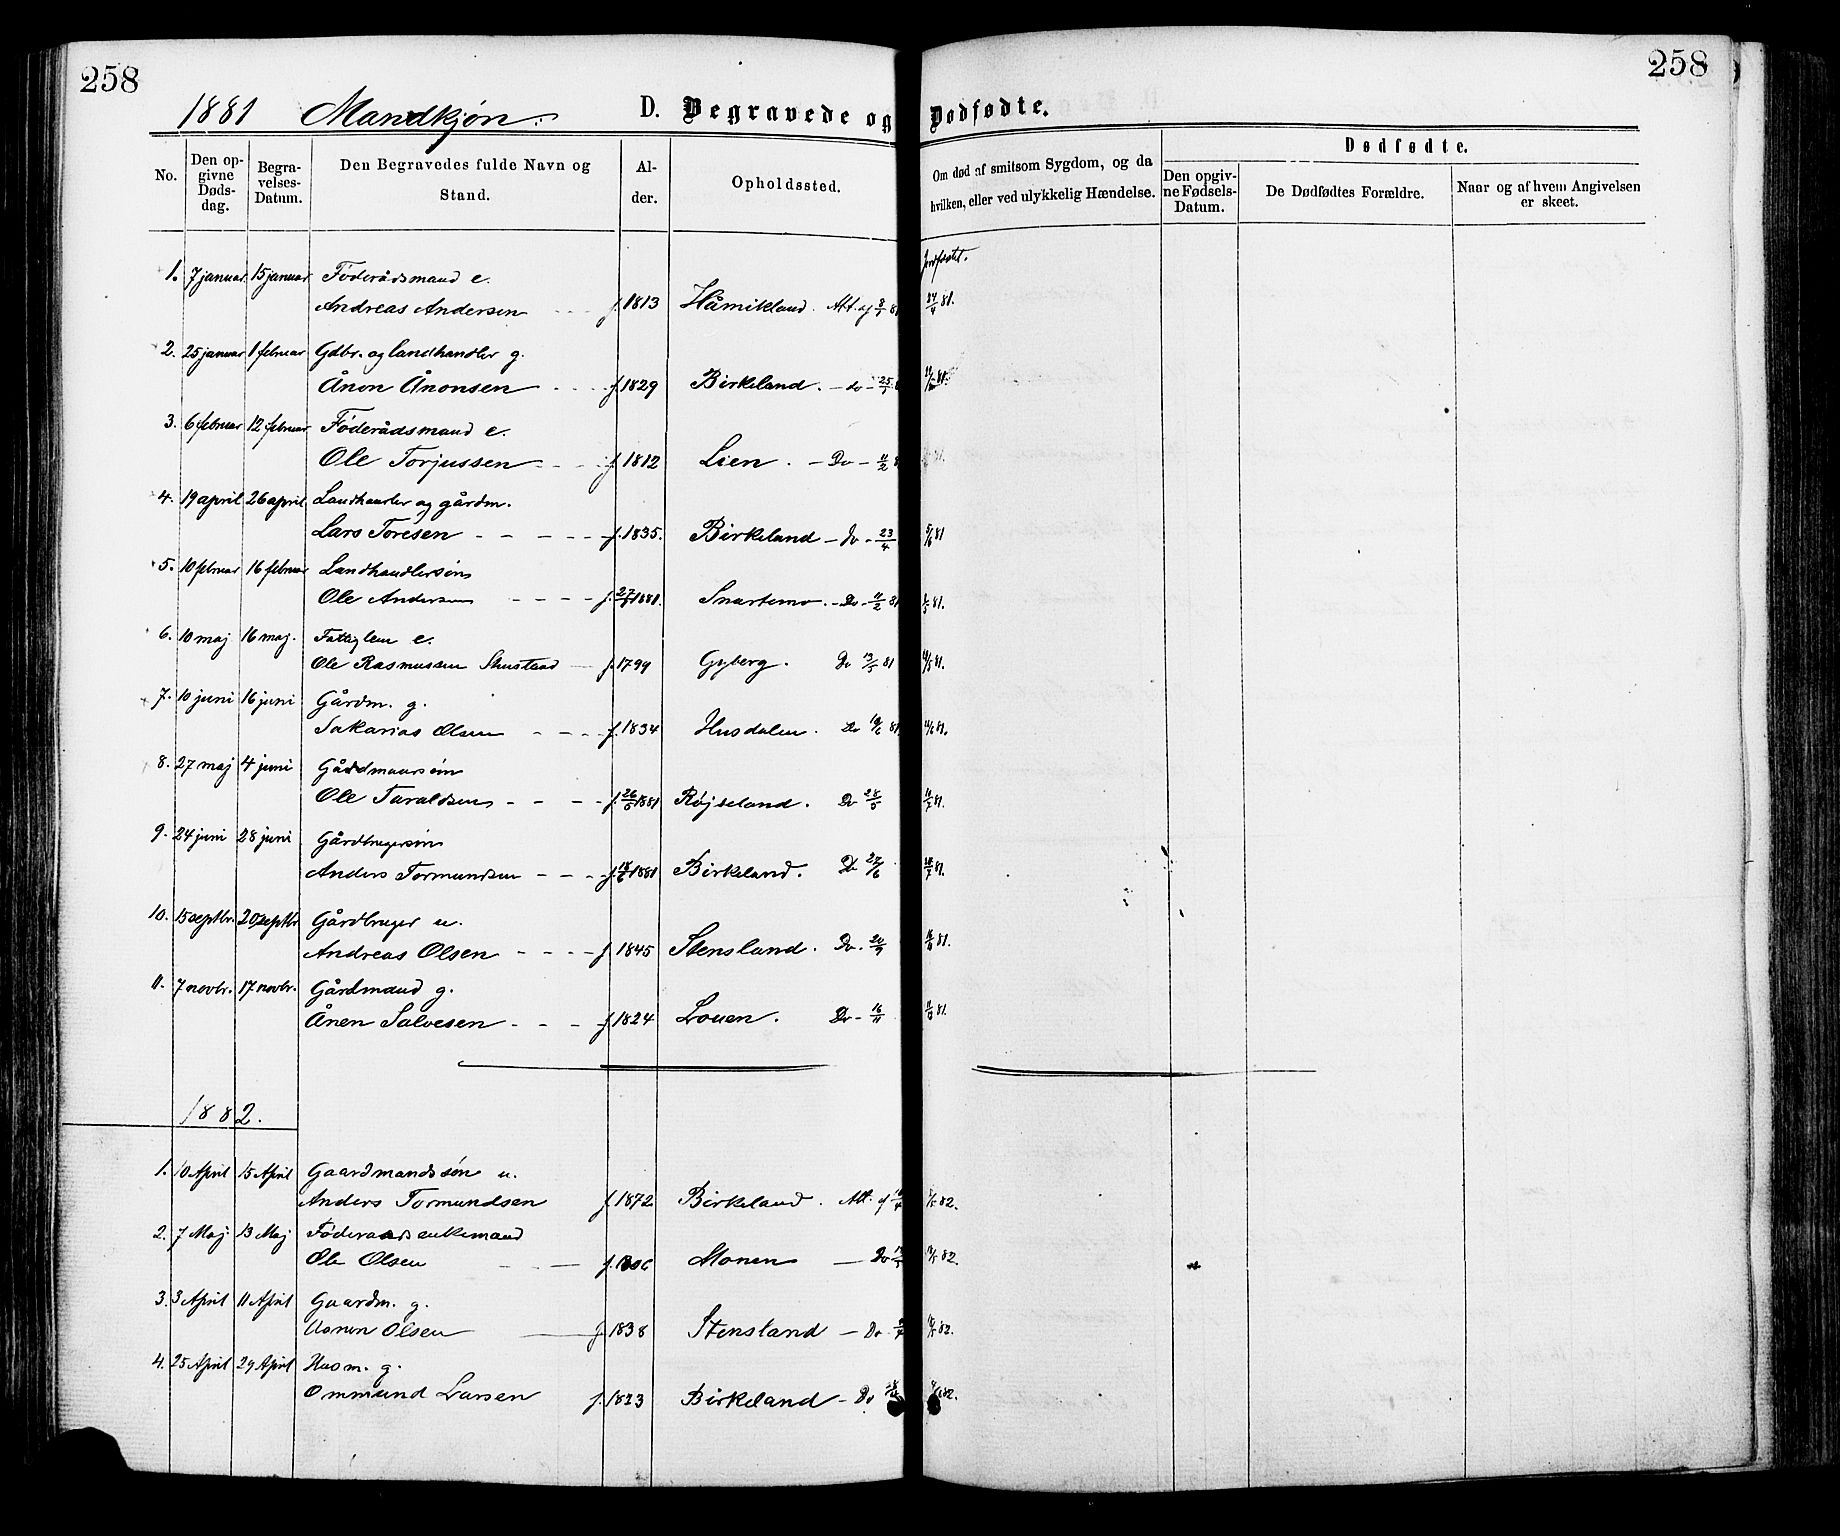 258
258
1881 Mandkjøn. D. Begravede og Dødfødte.
No.
Den opgivne Dødsdag.
Begravelses-Datum.
Den Begravedes fulde Navn og Stand.
Alder.
Opholdssted.
Om død af smitsom Sygdom, og da hvilken, eller ved ulykkelig Hændelse.
Dødfødte.
Den opgivne Fødsels-Datum.
De Dødfødtes Forældre.
Naar og af hvem Angivelsen er skeet.
Jordfæstet.
1. 7 januar 15 januar Føderådsmand e.
Andreas Andersen f. 1813 Håmikland. Att. af 81 24/4 81.
2. 25 januar 1 februar Gdbr. og landhandler g.
Ånon Ånonsen f. 1829 Birkeland. - do - 81.
3. 6 februar 12 februar Føderådsmand e.
Ole Torjussen f. 1812 Lien. - Do - 11/2
4. 19 april 26 april Landhandler og gårdm.
Lars Toresen f. 1835. Birkeland - Do - 23/4 81
5. 10 februar 16 februar Landhandlersøn
Ole Andersen f. 1881. Snartemo. - Do - 11/2 81 81.
6. 10 maj 16 maj. Fattiglem e.
Ole Rasmussen f. 1799 Gyberg. Do 13/5 81 81.
7. 10 juni 16 juni Gårdm. g.
Sakarias Olsen f. 1834 Husdalen. Do 81 81.
8. 27 maj 4 juni Gårdmansøn
Ole Taraldsen f. 26/5 1881 Røjseland. Do 28/5 81.
9. 24 juni 28 juni Gårdbrugersøn
Anders Tormundsen f. 1881 Birkeland. Do 27/6 81.
10. 15 septbr. 20 septbr Gårdbruger u.
Andreas Olsen f. 1845 Stensland. Do. 20/9 81.
11. 7 novbr. 17 novbr. Gårdmand g.
Ånen Salvesen f. 1824 Louen. Do - 16/11 81.
1882.
1. 10 April 15 April Gaardmandssøn u.
Anders Tormundsen f. 1872 Birkeland. Att. af 82.
2. 7 Maj 13 Maj Føderaadsenkemand
Ole Olsen f. Monen - Do 82.
3. 3 April 11 April Gaardm. g.
Aanen Olsen f 1838 Stensland - Do 82.
4. 25 April 29 April Husm. g.
Ommund Larsen f. 1823 Birkeland - Do 82.